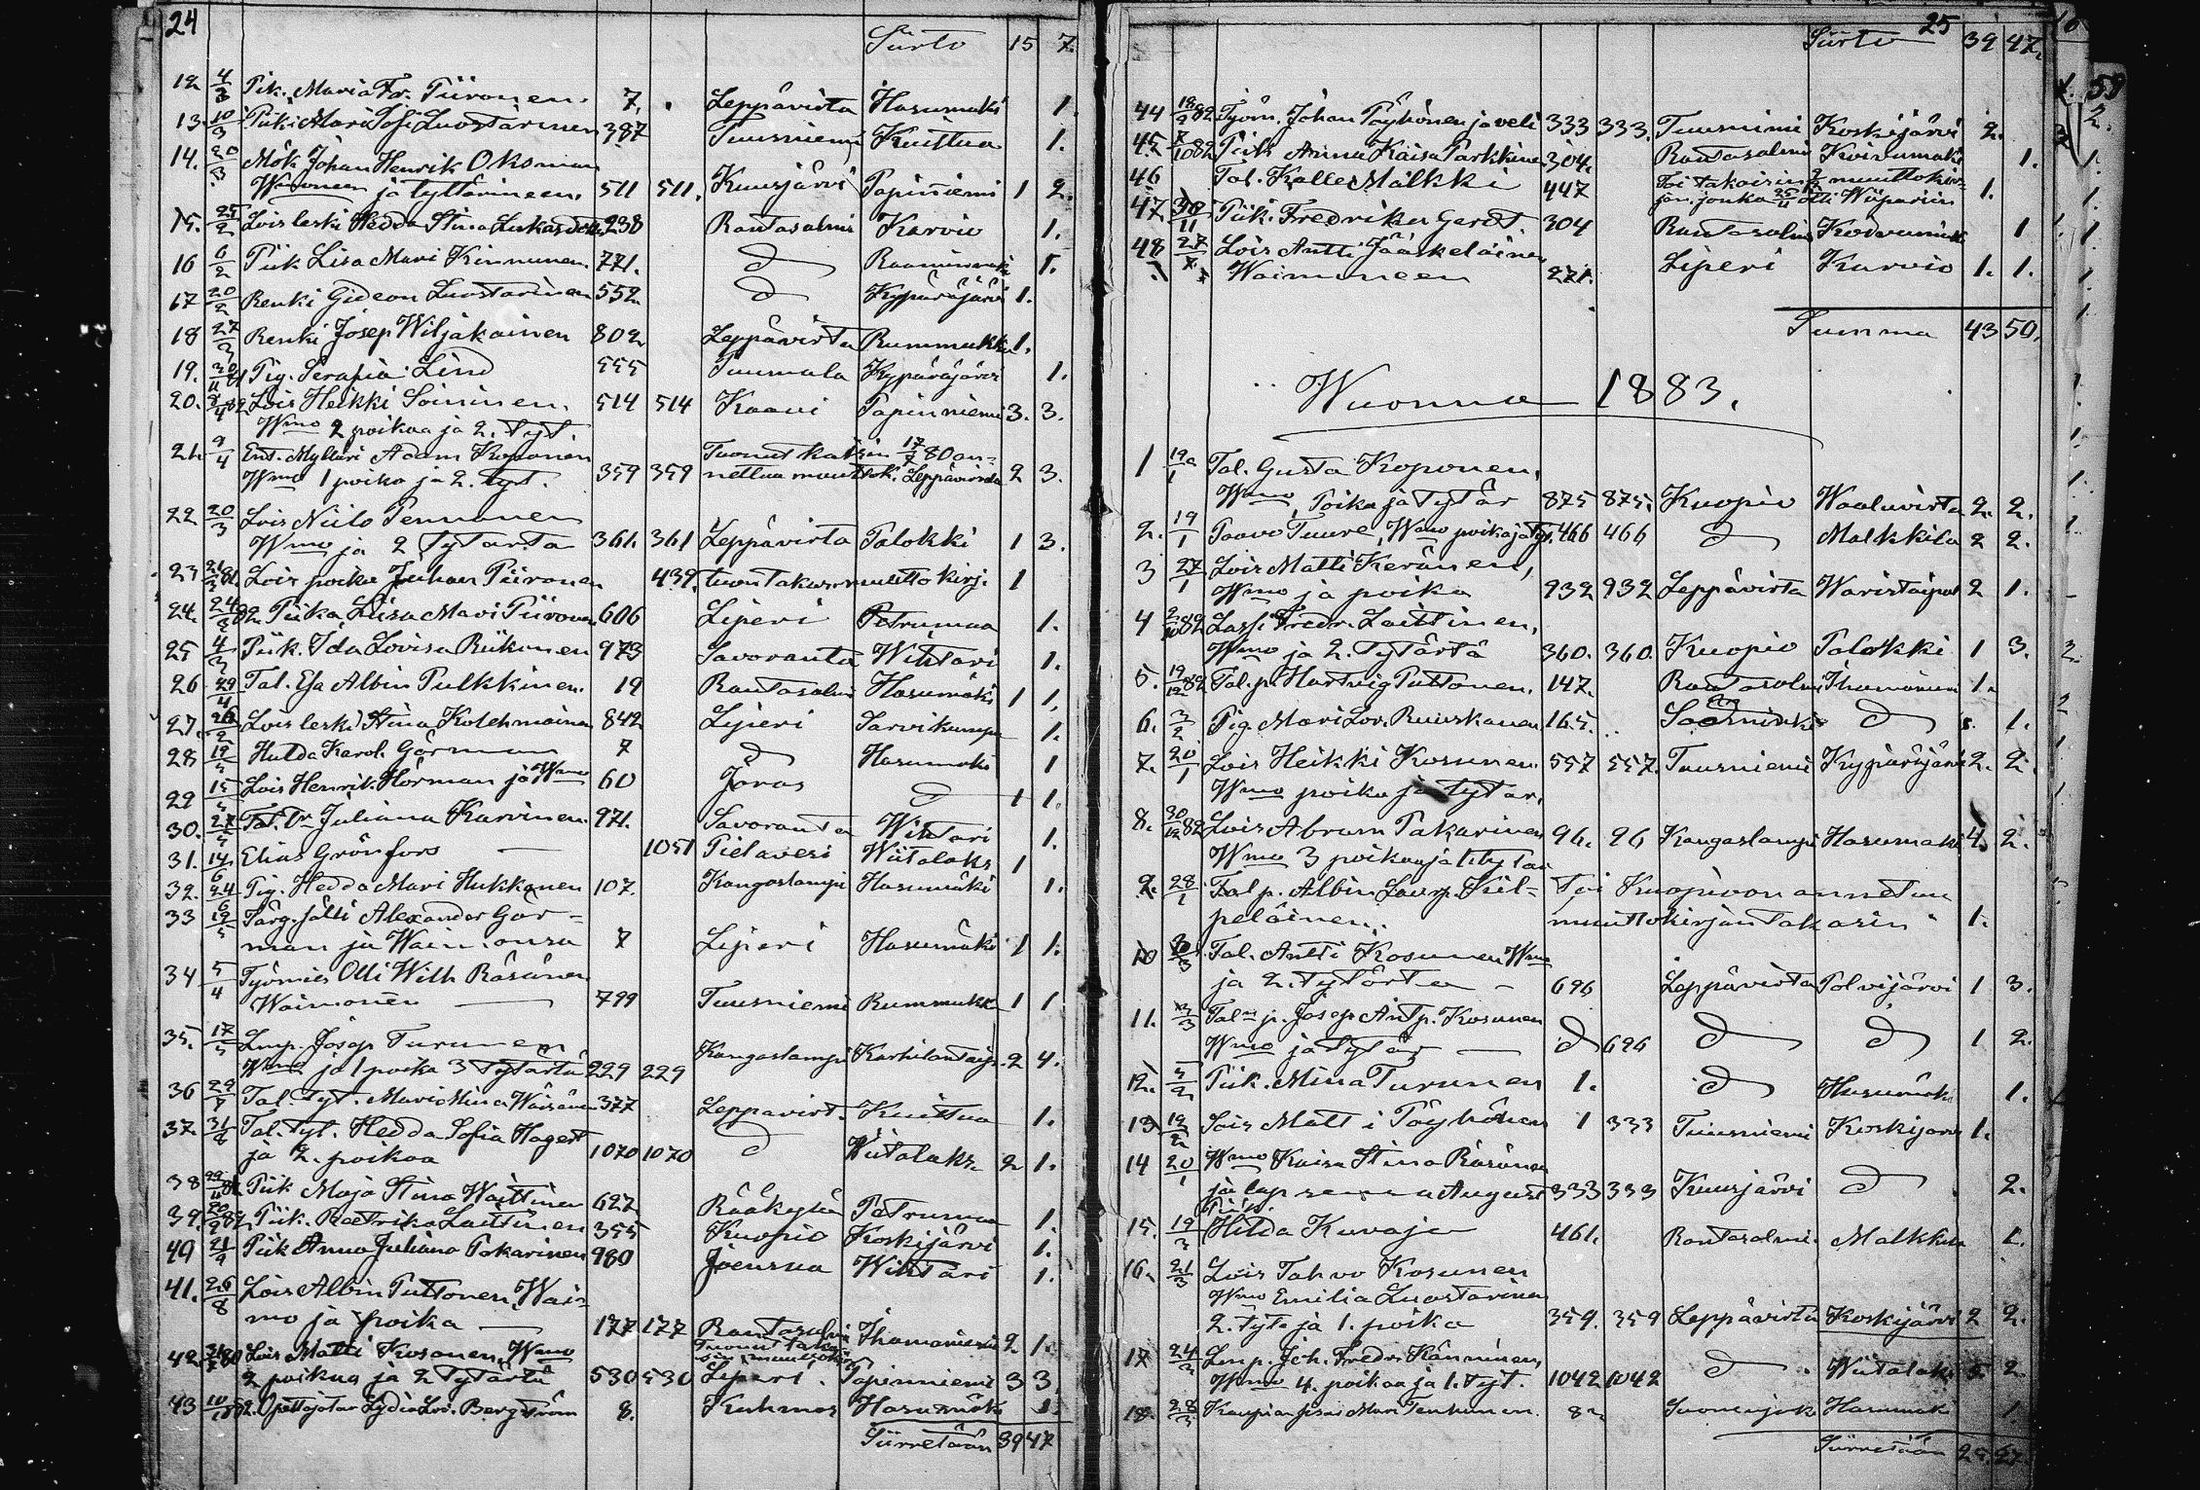 24
Siirto 15 7.
12 4/3 Pik. Maria Fr. Piironen. 7. Leppävirta Hasumäki 1.
13. 10/3 Piika Mari Sofi Luostarinen 387 Tuusniemi Kuittua 1.
14. 20/3 Mök Johan Henrik Oksman
Waimoneen ja tyttärineen. 511 511. Kuusjärvi Papinniemi 1 2.
15. 25/2 Lois leski Hedda Stina 238 Rantasalmi Karvio 1.
16 6/2 Piik Lisa Mari Kinnunen. 771. 1.
17 20/2 Renki Gideon Luostarinen 552. Kypäräjärvi 1.
18 27/3 Renki Josep Wiljakainen 802 Leppävirta Rummukka 1.
19. 30/11 81 Pig. Serafia Lind 555 Kypäräjärvi 1.
20. 8/4 82 Lois Heikki Soininen. 514 514 Kaavi Papinniemi 3. 3.
Wmo 2 poikaa ja 2. tyt.
21. 9/4 Ent. Mylläri Adam Koponen Tuonut 17/7 80 an-
Wmo 1 poika ja 2. tyt. 359 359 nettua muuttok. Leppävirta 2 3.
22 20/3 Lois Niilo Pennanen
Wmo ja 2 Tytärtä 361. 361 Leppävirta Palokki 1 3.
23 Lois poika Juhan Piironen 439. tuon takasin muuttokirj. 1
24. 24/3 82 Piika Liisa Mari Piironen 606 Liperi Petrumaa 1.
25 4/3 Piik. Ida Lovisa Riikonen 973 Savoranta Wihtari 1.
26 29/4 Tal. Esa Albin Pulkkinen. 19 Rantasalmi Hasumäki 1 1.
27. 26/2 Lois leski Stina Kolehmainen 842 Liperi Sarvikumpu 1.
28 19/5 Hulda Karol. Görman 7 Hasumäki 1
29 15/5 Lois Henrik Hörman ja Wmo 60 Joros 1 1.
30. 27/5 Tal. Tr Juliana Karvinen. 971. Savoranta Wihtari 1.
31. 14/6 Elias Grönfors 1051 Pielavesi Wiitalaks 1
32. 24/6 Pig. Hedda Mari Hukkanen 107. Kangaslampi Hasumäki 1.
33 19/5 Färg. fälli Alexander Gör-
man ja Waimonsa 7 Liperi Hasumäki 1 1.
34 5/4 Työmies Olli Wilh Räsänen
Waimoneen 799 Tuusniemi Rummukk 1 1
35. 17/5 Lmp. Josep Turunen
Wmo ja 1 poika 3 Tytärtä 229 229 Kangaslampi 2 4.
36 29/7 Tal. tyt. Mari Mina Wäisänen 377 Leppävirt. Kuittua 1.
37. 31/8 Tal. tyt. Hedda Sofia Hagert
ja 2. poikaa 1070 1070 Wiitalaks. 2 1.
38 Piik Maja Stina Waittinen 627 Rääkylä Petrumaa 1.
39. Piik. Reetrika Laitinen 355 Kuopio Koskijärvi 1.
40 21/9 Piik Anna Juliana Pakarinen 980 Joensuu Wihtari 1.
41. 26/8 Lois Albin Puttonen, Wai-
mo ja poika 177 177 Rantasalmi Ihamaniemi 2 1.
42. Lois Matti Kosonen, Wmo
2 poikaa ja 2 Tytärtä 530 530 Liperi. Papinniemi 3 3
43 Opettajatar Lydia Lov. Bergström 8. Kuhmos Hasumäki 1.
Siirretään 39 47
25
Siirto 39 47.
44 Työm. Johan Pöyhönen ja veli 333 333. Tuusniemi Koskijärvi 2.
45. 7/10 82 Piik Anna Kaisa Parkkinen 304. Rantasalmi Koivumäki 1.
46 Tal. Kalle Mälkki 447 Toi takaisin muuttokir-
jan, jonka otti Wiipuriin 1.
47. 30/11 Piik. Fredrika Gerdt. 304 Rantasalmi Koivumäki 1
48 27/7. Lois Antti Jääskeläinen
Waimoneen 271. Liperi Karvio 1. 1.
Summa 43 50.
Wuonna 1883.
1 Tal. Gusta Koponen,
Wmo, Poika ja Tytär 875 875. Kuopio Waaluvirta 2. 2.
2. 19/1 Paavo Tuure, Wmo poika ja tyt. 466 466 Malkkila 2 2.
3 27/1 Lois Matti Keränen,
Wmo ja poika 932 932 Leppävirta Waristaipal 2 1.
4 2/10 82 Lassi Fredr. Laittinen,
Wmo ja 2. Tytärtä 360. 360. Kuopio Palokki 1 3.
5. 19/12 82 Tal. p. Hartvig Puttonen. 147. Rantasalmi Ihamaniemi 1.
6. 3/2 Pig. Mari Lov. Ruuskanen 165. 1.
7. 20/1 Lois Heikki Kosunen 557 557. Tuusniemi Kypäräjärvi 2. 2.
Wmo poika ja tytär,
8. 30/12 82 Lois Abram Pakarinen 96. 96 Kangaslampi Hasumäki 4. 2.
Wmo 3 poikaa ja 1 tytär
9. 28/1 Tal p. Albin Laurp. Kiil- Toi Kuopioon annetun
peläinen. muuttokirjan takasin 1.
10 Tal. Antti Kosunen Wmo
ja 2. tytärtä 696 Leppävirta Polvijärvi 1 3.
11. Tal. p. Josep Antp. Kosunen
Wmo ja tytär 696 1 2.
12. Piik. Mina Turunen 1. Hasumäki 1.
13 Lois Matti Pöyhönen 1 333 Tuusniemi Koskijärvi 1.
14 20/1 Wmo Kaisa Stina Räsänen
ja lapsensa August 333 333 Kuusjärvi 2.
15. 19/3 Hilda Kuvaja 461. Rantasalmi. Malkkila 1.
16. 21/3 Lois Tahvo Kosunen
Wmo Emilia Luostarinen
2. tyt. ja 1. poika 359. 359 Leppävirta Koskijärvi 2 2.
17 24/3 Lmp. Joh. Fredr. Hänninen,
Wmo 4. poikaa ja 1. tyt. 1042 1042 Wiitalaks 5. 2.
18. 28/3 Mari Tenhunen. 8 Hasumäki 1
Siirretään